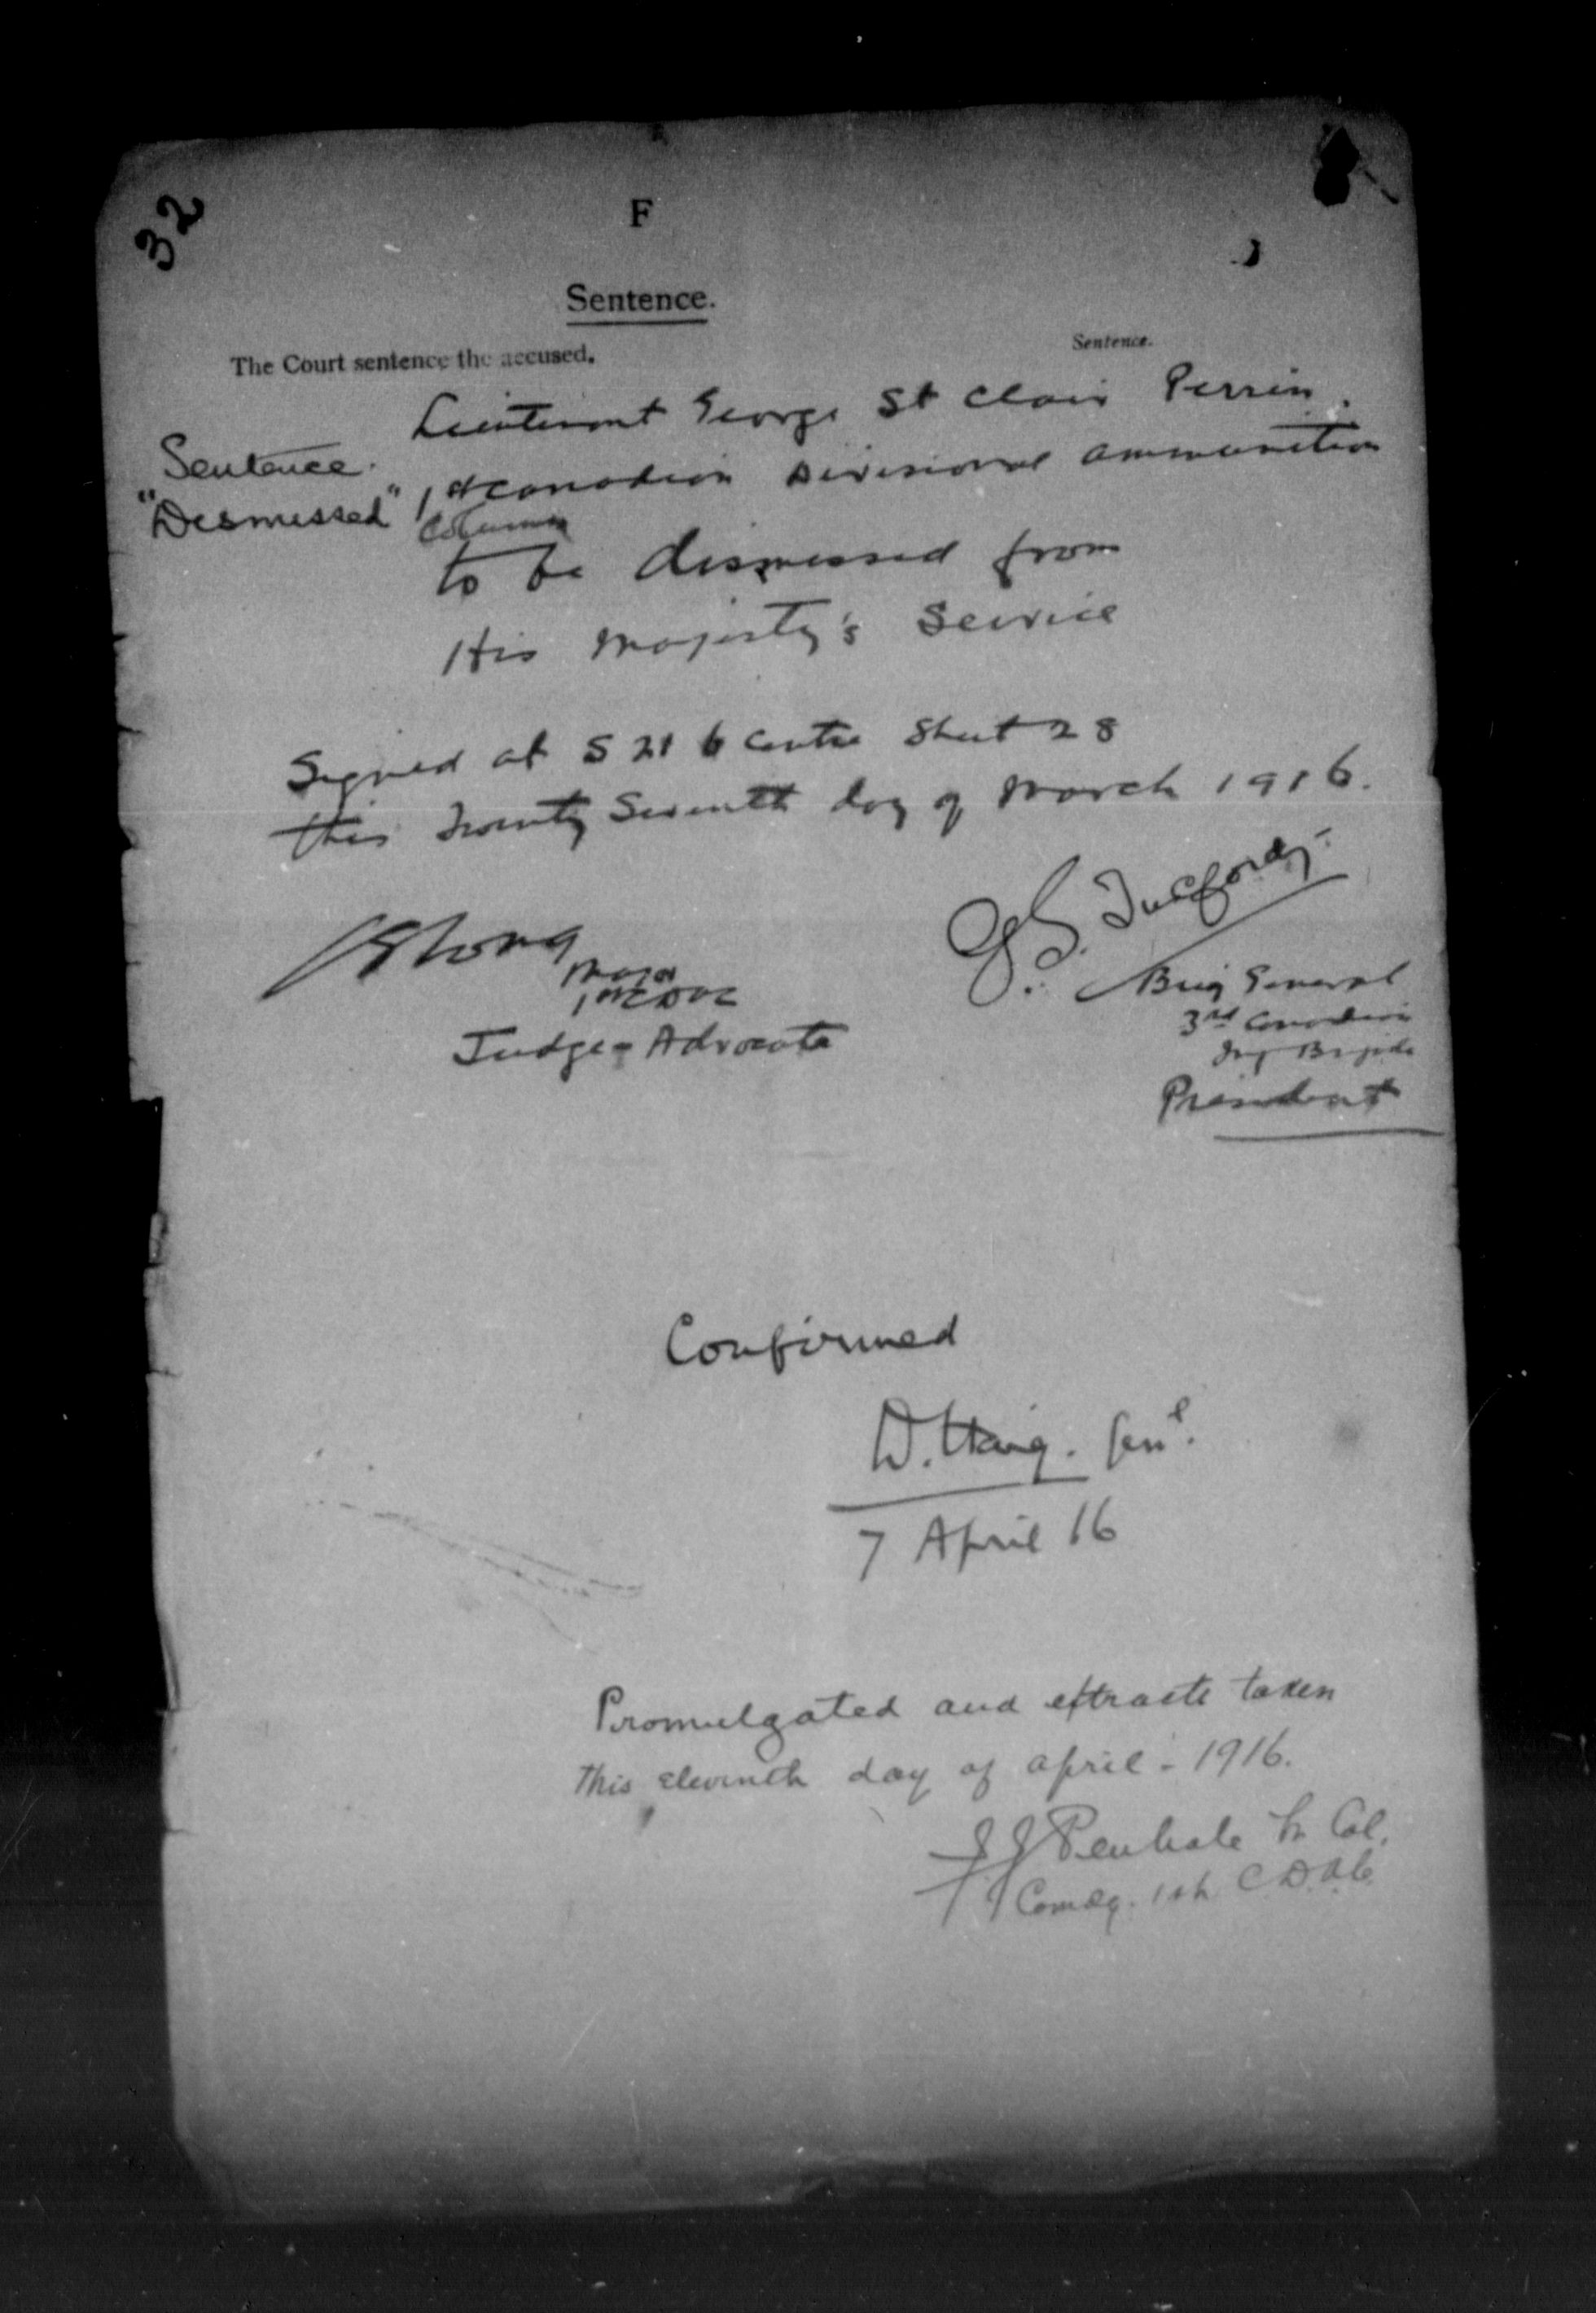 32
F
Sentence.
The Court sentence the accused.
Sentence.
Lieutenant George St Clair Perrin.
Sentence.
"Dismissed"
1st Canadian Divisional Ammunition
Column
to be dismissed from
His Majesty's Service
Signed at S 21 b Centre Sheet 28
this Twenty Seventh day of March 1916.
Major
1st CDAC
Judge-Advocate
G.S. Tuxford
Brig General
3rd Canadian
Inf Brigade
President
Confirmed
D. Haig. Genl.
7 April 16
Promulgated and extracts taken
this eleventh day of april - 1916.
J J Penhale Lt Col.
Comdg. 1st C.D.A.C.